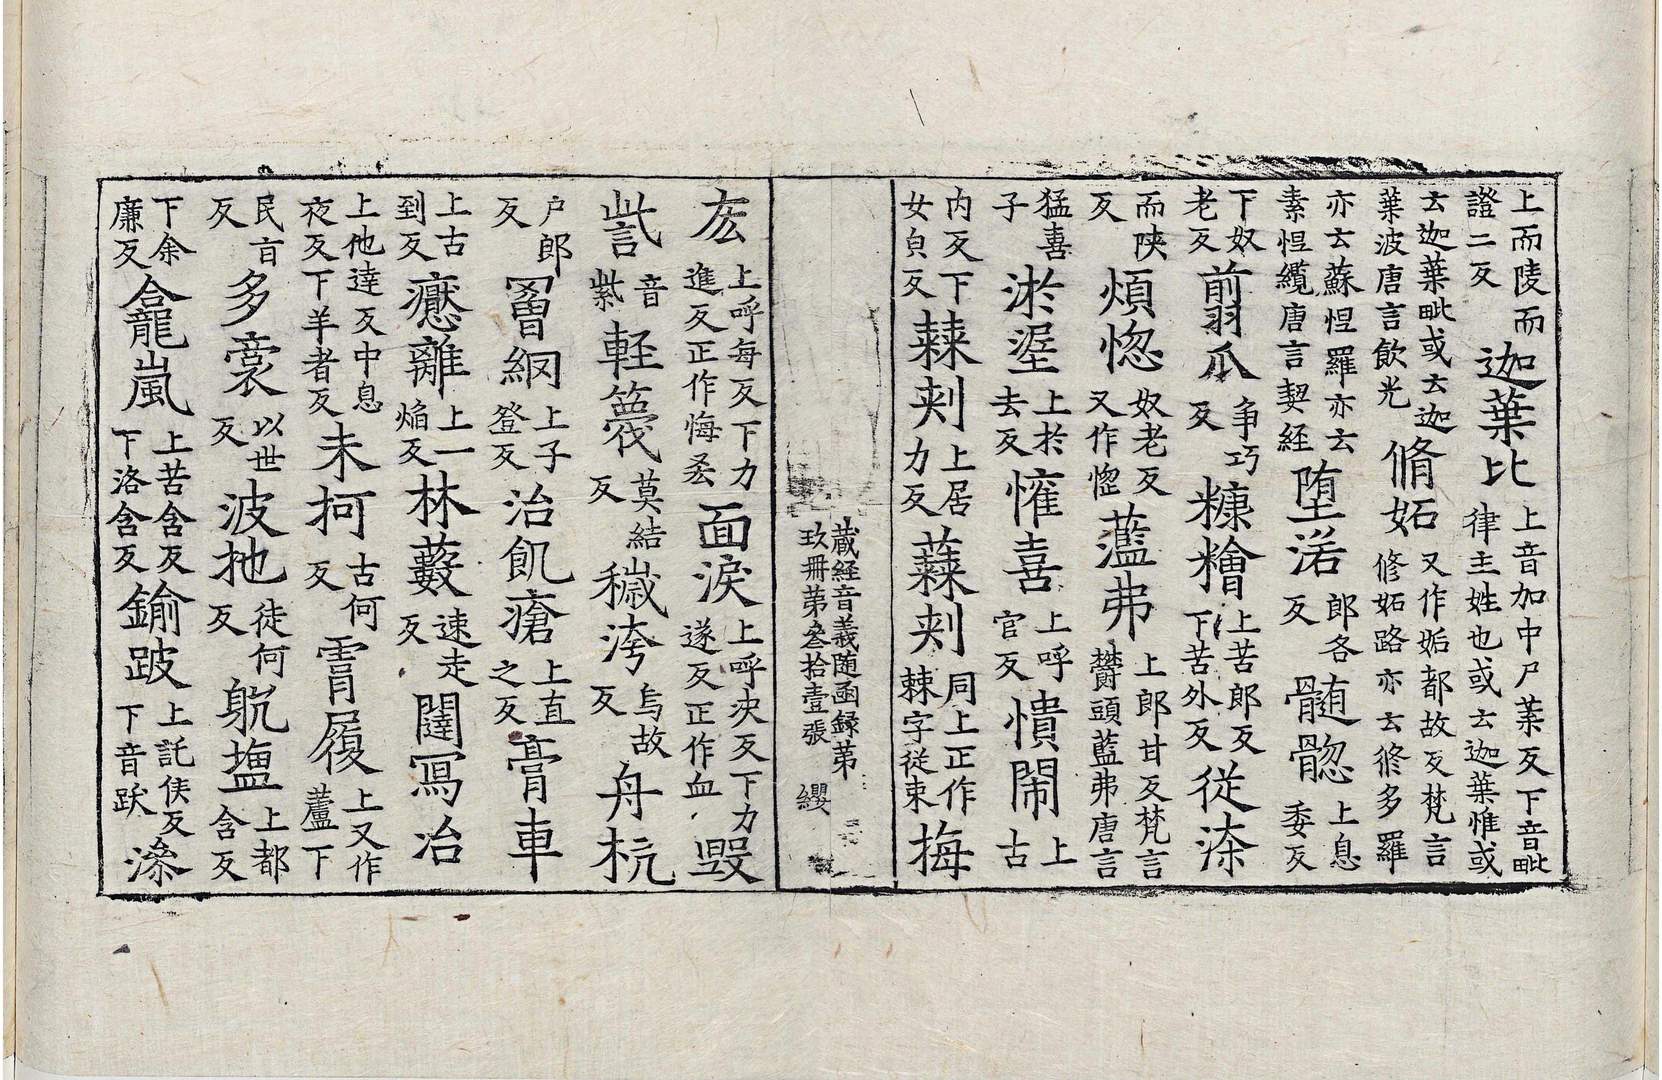 上而陵而證二反迦葉比上音加中尸葉反下音毗律主姓也或云迦葉惟或
云迦葉毗或云迦葉波唐言飲光脩妬又作妬都故反梵言修妬路亦云修多羅
亦云蘇怛羅亦云素怛纜唐言契經墮涽郎各反髄䯳上息委反
下奴老反翦爪爭巧反糠糩上苦郎反下苦外反従渿
而陝反煩惚奴老反又作㛴藍弗上郎甘反梵言欝頭藍弗唐言
猛喜子淤渥上於去反懽喜上呼官反憒閙上古
内反下女皃反蕀刾上居力反蕀刾同上正作棘字従朿梅
藏経音義随函録第玖冊第叄拾壹張 纓
㕀上呼每反下力進反正作悔吝面淚上呼決反下力遂反正作血毀
呰音紫輕篾莫結反穢洿烏故反舟杭
户郎反罾網上子登反治飢瘡上直之反膏車
上古到反癔離上一焰反林藪速走反闥冩冶
上他達反中息夜反下羊者反未柯古何反霄履上又作蘆下
民盲反多裔以世反波扡徒何反躭塭上都含反
下余廉反龕嵐上苦含反下洛含反鍮跛上託侯反下音跃滌